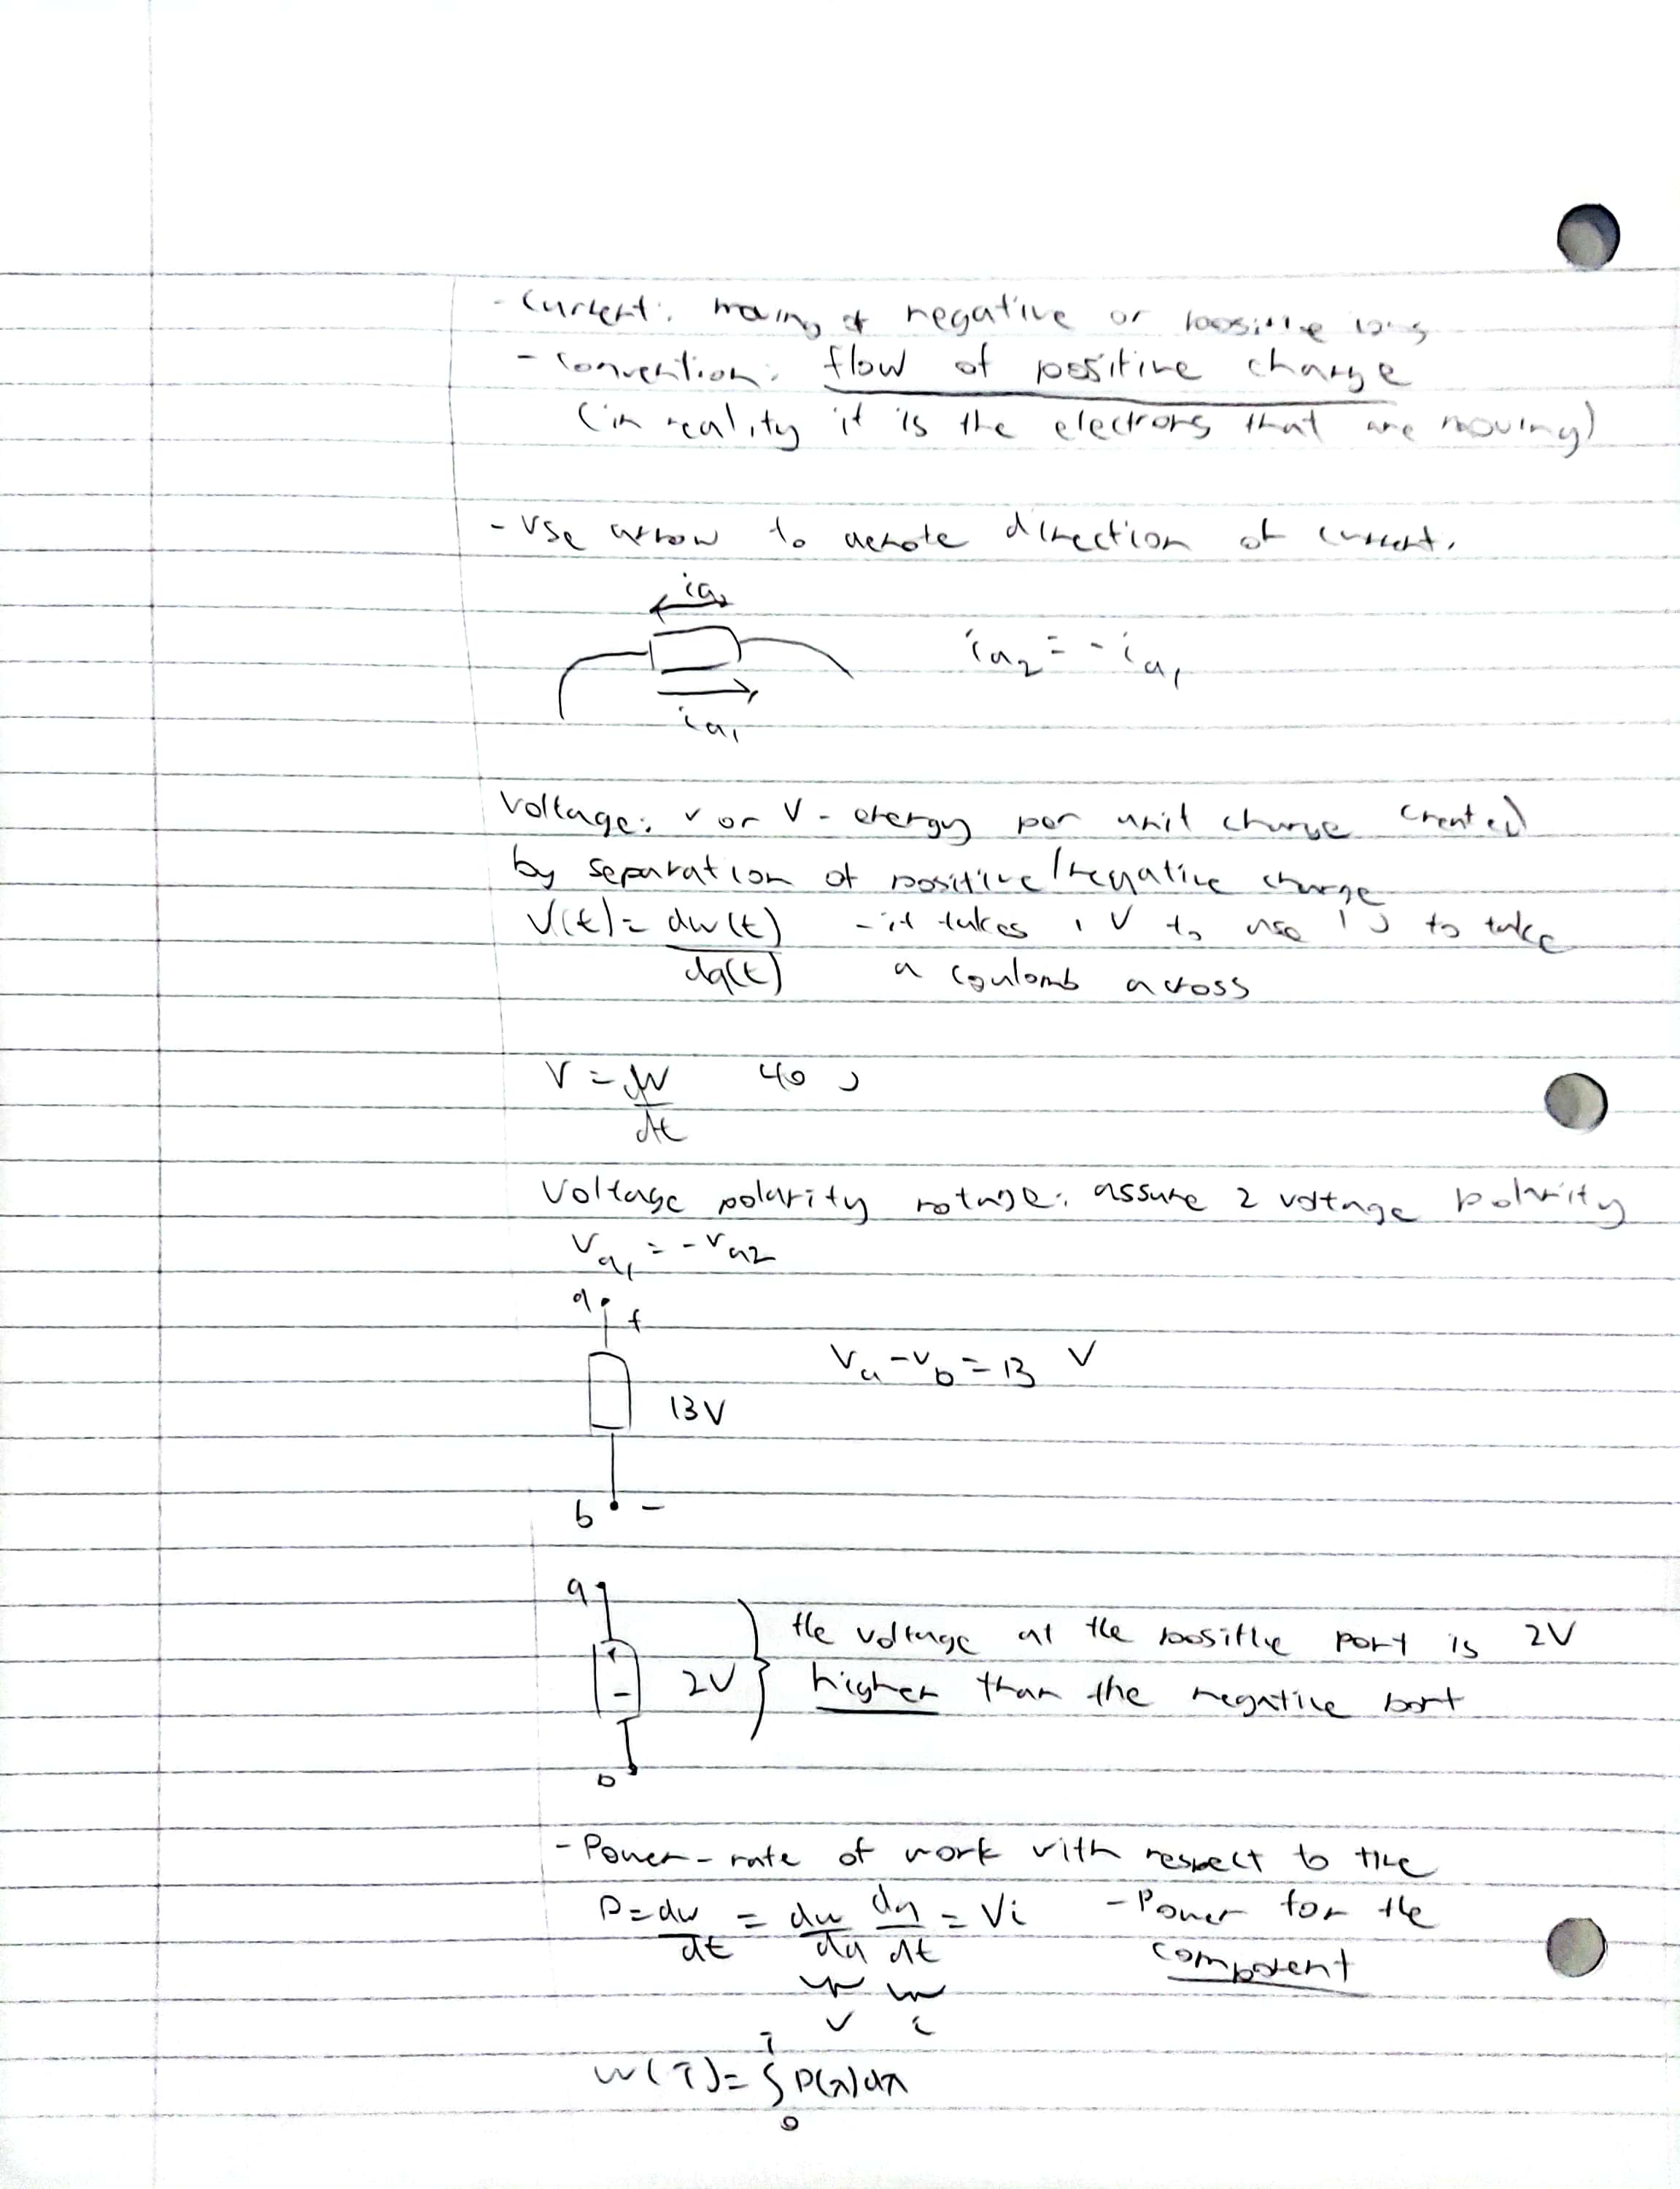 - Current: moving of negative or positive ions
- Convention: flow of positive charge
(in reality it is the electrons that are moving)
- Use arrow to denote direction of current.
ia2
ia2 = - ia1
ia1
Voltage: v or V - energy per unit charge created
by separation of positive/negative charge
V(t) = dw(t)/dq(t) - it takes 1 V to use 1 J to take
a coulomb across
V = dW/dt 40 J
Voltage polarity : assume 2 voltage polarity
Va1 = -Va2
a +
Va - Vb = 13 V
13V
b -
a
+
2V } the voltage at the positive port is 2V
- higher than the negative port
b
- Power - rate of work with respect to time
P = dw/dt = dw/dq dq/dt = Vi - Power for the
component
V i
w(T) = ∫ P(λ)dλ
T
0